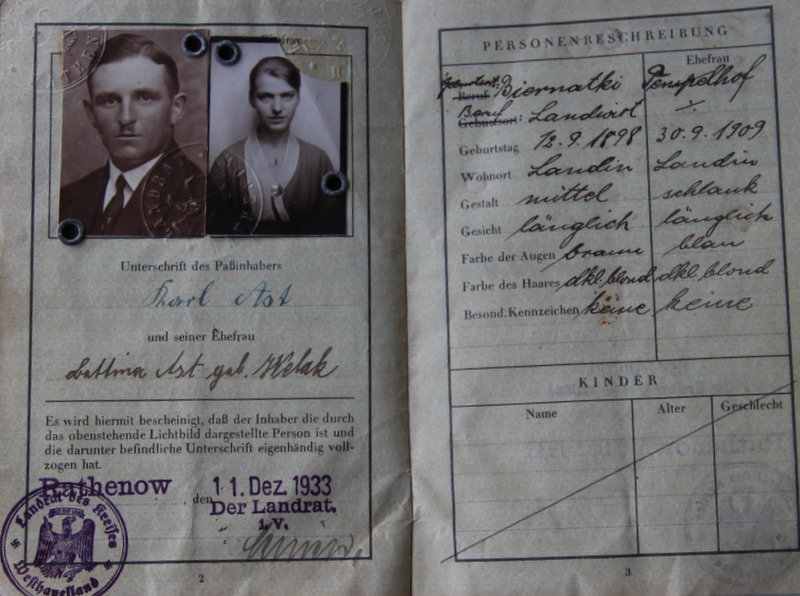 Ehefrau
Unterschrift des Paßinhabers
Karl Ast
und seiner Ehefrau
Bettina Ast geb. Welak
Es wird hiermit bescheinigt, daß der Inhaber die durch
das obenstehende Lichtbild dargestellte Person ist und
die darunter befindliche Unterschrift eigenhändig voll-
zogen hat.
Rathenow, den 11. Dez. 1933
Der Landrat.
i.V.
Landrat des Kreises
Westhavelland
2
PERSONENBESCHREIBUNG
Ehefrau
Geburtsort: Beruf: Biernatki Tempelhof
Beruf Geburtsort: Landwirt /.
Geburtstag 12.9.1898 30.9.1909
Wohnort Landin Landin
Gestalt mittel schlank
Gesicht länglich länglich
Farbe der Augen braun blau
Farbe des Haares dkl. blond dkl. blond
Besond. Kennzeichen keine keine
KINDER
Name Alter Geschlecht
3